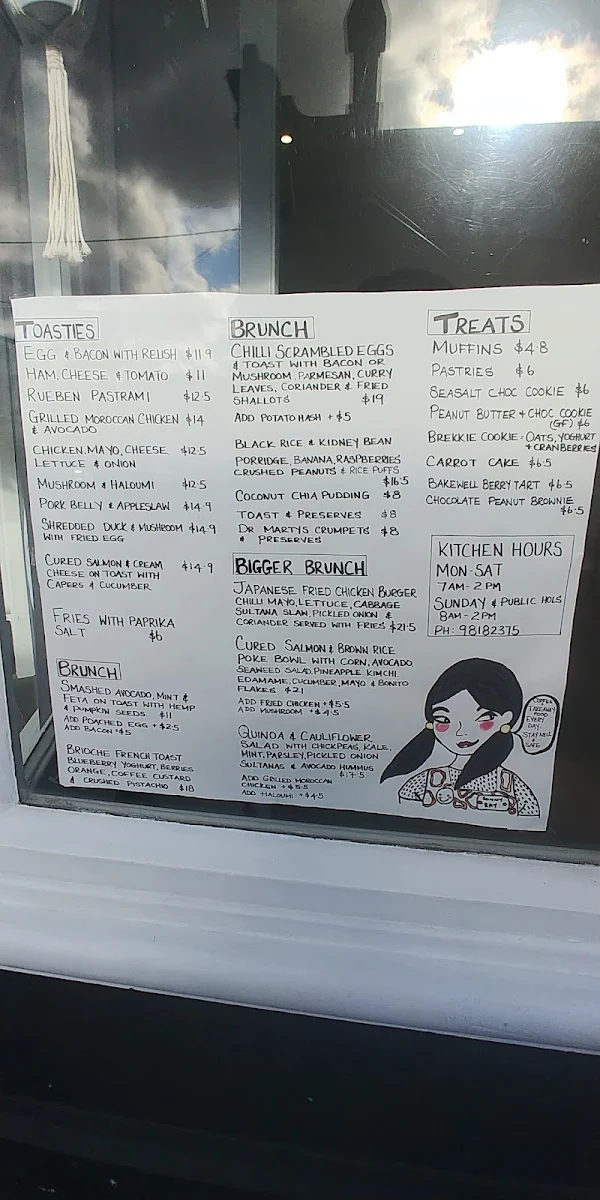 TOASTIES
EGG & BACON WITH RELISH $11.9
HAM, CHEESE & TOMATO $11
RUEBEN PASTRAMI $12.5
GRILLED MOROCCAN CHICKEN $14
& AVOCADO
CHICKEN, MAYO, CHEESE $12.5
LETTUCE & ONION
MUSHROOM & HALOUMI $12.5
PORK BELLY & APPLESLAW $14.9
SHREDDED DUCK & MUSHROOM $14.9
WITH FRIED EGG
CURED SALMON & CREAM $14.9
CHEESE ON TOAST WITH
CAPERS & CUCUMBER
FRIES WITH PAPRIKA
SALT $6
BRUNCH
SMASHED AVOCADO, MINT &
FETA ON TOAST WITH HEMP
& PUMPKIN SEEDS $11
ADD POACHED EGG +$2.5
ADD BACON +$5
BRIOCHE FRENCH TOAST
BLUEBERRY YOGHURT, BERRIES
ORANGE, COFFEE CUSTARD
& CRUSHED PISTACHIO $18
BRUNCH
CHILLI SCRAMBLED EGGS
& TOAST WITH BACON OR
MUSHROOM, PARMESAN, CURRY
LEAVES, CORIANDER & FRIED
SHALLOTS $19
ADD POTATO HASH + $5
BLACK RICE & KIDNEY BEAN
PORRIDGE, BANANA, RASPBERRIES
CRUSHED PEANUTS & RICE PUFFS
$16.5
COCONUT CHIA PUDDING $8
TOAST & PRESERVES $8
DR MARTYS CRUMPETS $8
& PRESERVES
BIGGER BRUNCH
JAPANESE FRIED CHICKEN BURGER
CHILLI MAYO, LETTUCE, CABBAGE
SULTANA SLAW, PICKLED ONION &
CORIANDER SERVED WITH FRIES $21.5
CURED SALMON & BROWN RICE
POKE BOWL WITH CORN, AVOCADO,
SEAWEED SALAD, PINEAPPLE KIMCHI,
EDAMAME, CUCUMBER, MAYO & BONITO
FLAKES $21
ADD FRIED CHICKEN +$5.5
ADD MUSHROOM +$4.5
QUINOA & CAULIFLOWER
SALAD WITH CHICKPEAS, KALE,
MINT, PARSLEY, PICKLED ONION
SULTANAS & AVOCADO HUMMUS
$17.5
ADD GRILLED MOROCCAN
CHICKEN +$5.5
ADD HALOUMI +$4.5
TREATS
MUFFINS $4.8
PASTRIES $6
SEASALT CHOC COOKIE $6
PEANUT BUTTER + CHOC COOKIE
(GF) $6
BREKKIE COOKIE: OATS, YOGHURT
+ CRANBERRIES
CARROT CAKE $6.5
BAKEWELL BERRY TART $6.5
CHOCOLATE PEANUT BROWNIE
$6.5
KITCHEN HOURS
MON-SAT
7AM-2PM
SUNDAY & PUBLIC HOLS
8AM-2PM
PH: 98182375
COFFEE
TAKEAWAY
FOOD
EVERY
DAY.
STAY WELL
SAFE